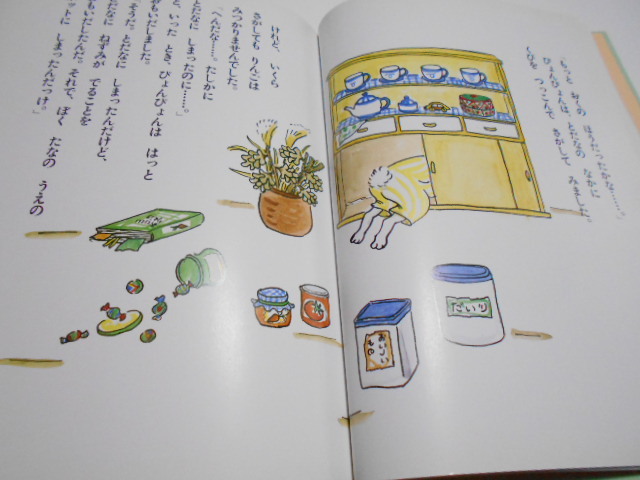 「もっと おくの ほうだったかな……。」
ぴょんぴょんは、とだなの なかに
くびを つっこんで さがして みました。
けれど、いくら
さがしても りんごは
みつかりませんでした。
「へんだな……。たしかに
とだなに しまったのに……。」
と、いった とき、ぴょんぴょんは はっと
おもいだしました。
「そうだ。とだなに しまったんだけど、
とだなに ねずみが でることを
おもいだしたんだ。それで、ぼく たなの うえの
ットに しまったんだっけ。」
おいしい
もの
だいり